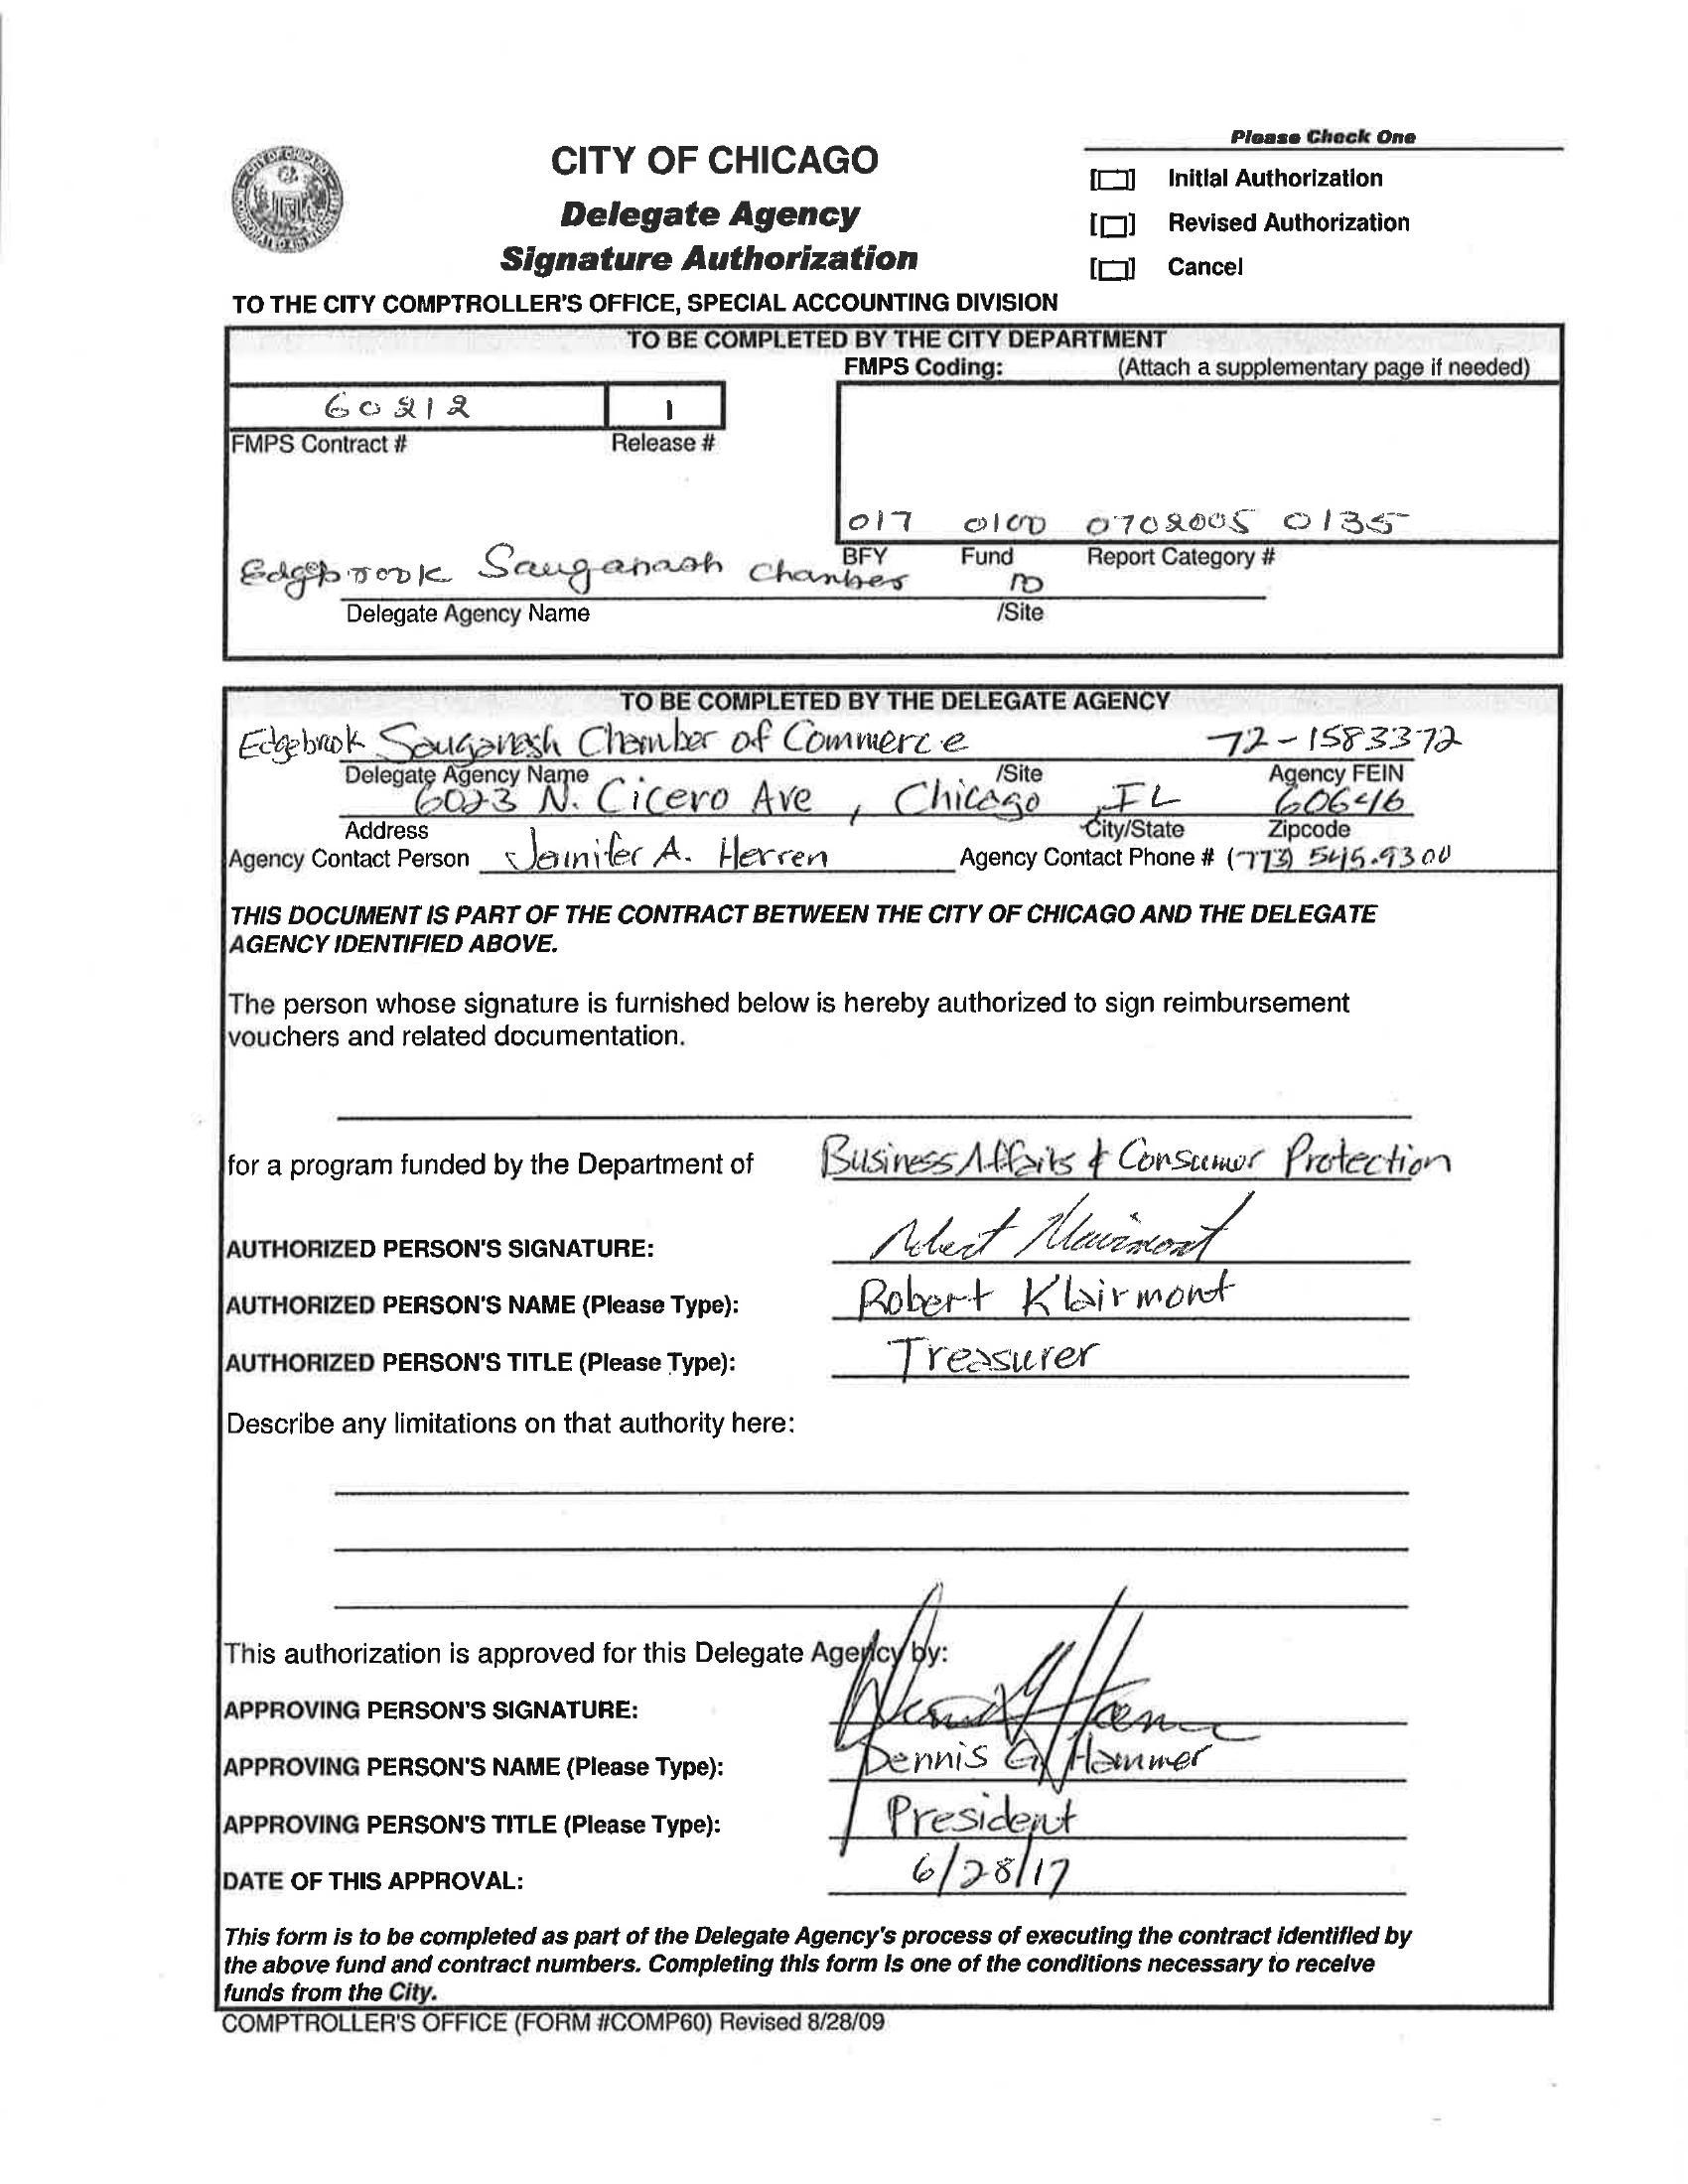 Please Check One
CITY OF CHICAGO
Delegate Agency
Signature Authorization
[ ] Initial Authorization
[ ] Revised Authorization
[ ] Cancel
TO THE CITY COMPTROLLER'S OFFICE, SPECIAL ACCOUNTING DIVISION
TO BE COMPLETED BY THE CITY DEPARTMENT
FMPS Coding: (Attach a supplementary page if needed)
60212 1
FMPS Contract # Release #
017 0100 0702005 0135
BFY Fund Report Category #
Edgebrook Sauganash Chamber
Delegate Agency Name /Site
TO BE COMPLETED BY THE DELEGATE AGENCY
Edgebrook Sauganash Chamber of Commerce 72-1583372
Delegate Agency Name /Site Agency FEIN
6023 N. Cicero Ave, Chicago IL 60646
Address City/State Zipcode
Agency Contact Person Jennifer A. Herren Agency Contact Phone # (773) 545.9300
THIS DOCUMENT IS PART OF THE CONTRACT BETWEEN THE CITY OF CHICAGO AND THE DELEGATE
AGENCY IDENTIFIED ABOVE.
The person whose signature is furnished below is hereby authorized to sign reimbursement
vouchers and related documentation.
for a program funded by the Department of Business Affairs & Consumer Protection
AUTHORIZED PERSON'S SIGNATURE: Robert Klairmont
AUTHORIZED PERSON'S NAME (Please Type): Robert Klairmont
AUTHORIZED PERSON'S TITLE (Please Type): Treasurer
Describe any limitations on that authority here:
This authorization is approved for this Delegate Agency by:
APPROVING PERSON'S SIGNATURE:
APPROVING PERSON'S NAME (Please Type): Dennis G. Hammer
APPROVING PERSON'S TITLE (Please Type): President
DATE OF THIS APPROVAL: 6/28/17
This form is to be completed as part of the Delegate Agency's process of executing the contract identified by
the above fund and contract numbers. Completing this form is one of the conditions necessary to receive
funds from the City.
COMPTROLLER'S OFFICE (FORM #COMP60) Revised 8/28/09